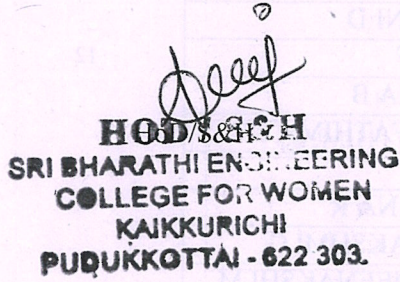 HOD/S&H
HOD/S&H
SRI BHARATHI ENGINEERING
COLLEGE FOR WOMEN
KAIKKURICHI
PUDUKKOTTAI - 622 303.